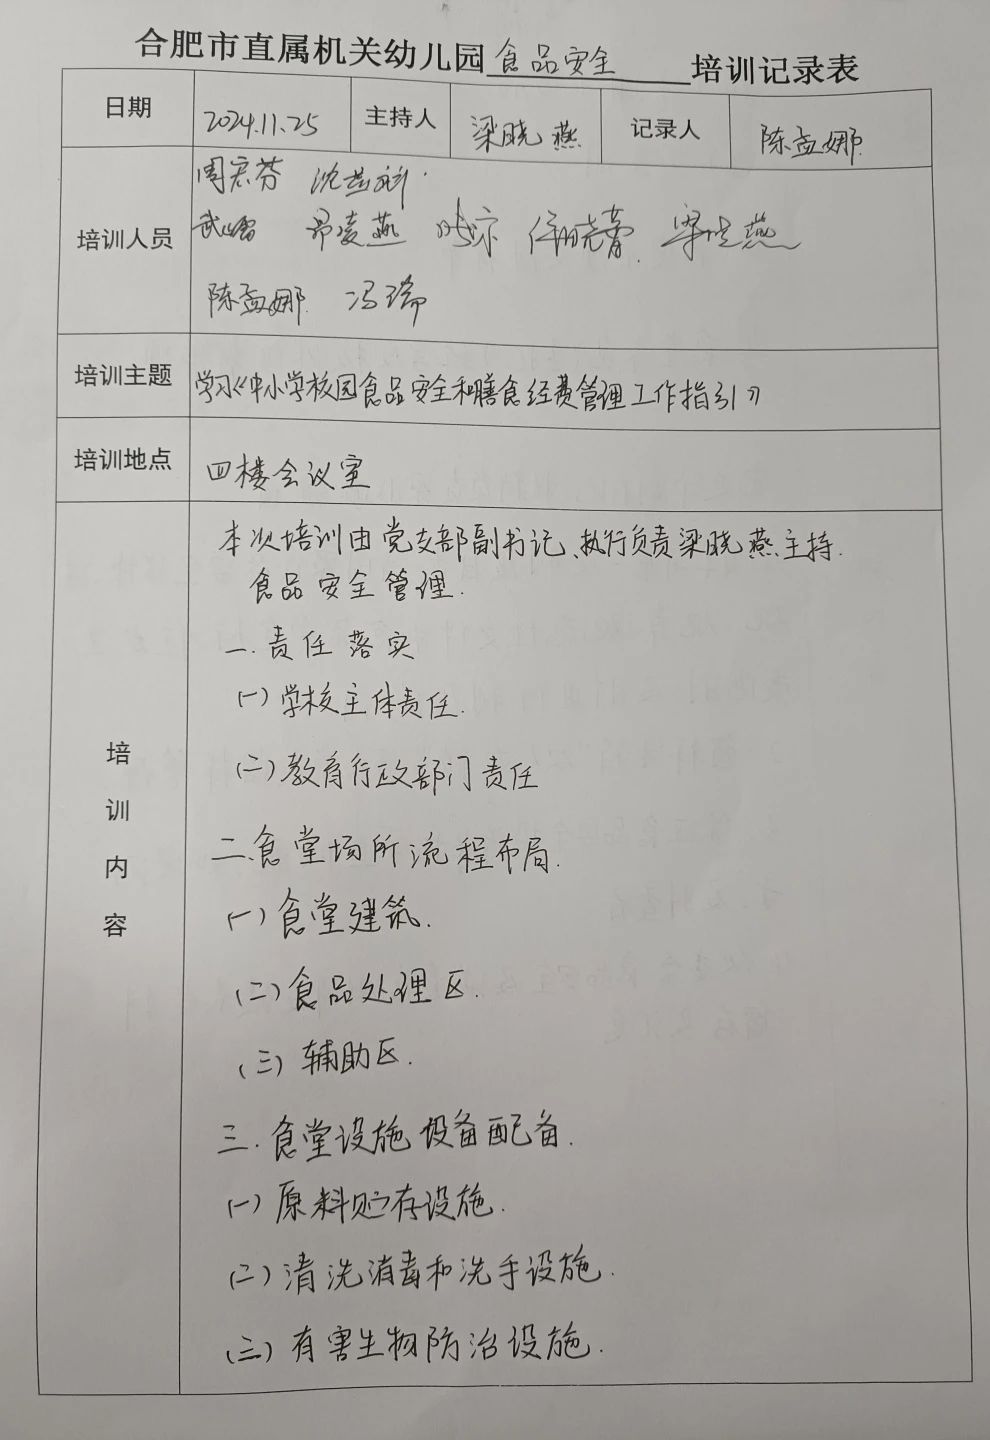 合肥市直属机关幼儿园食品安全培训记录表
日期 2024.11.25 主持人 梁晓燕 记录人 陈孟娜
周宏芬
培训人员
陈孟娜 冯瑞
培训主题 学习《中小学校园食品安全和膳食经费管理工作指引》
培训地点 四楼会议室
培训内容
本次培训由党支部副书记、执行负责梁晓燕主持.
食品安全管理.
一.责任落实
(一)学校主体责任.
(二)教育行政部门责任
二.食堂场所流程布局.
(一)食堂建筑.
(二)食品处理区.
(三)辅助区.
三.食堂设施设备配备.
(一)原料贮存设施.
(二)清洗消毒和洗手设施.
(三)有害生物防治设施.